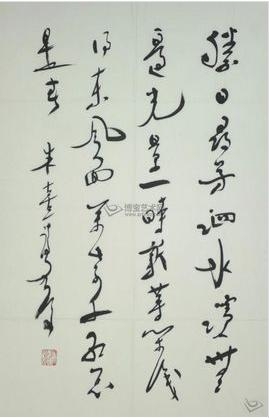 勝日尋芳泗水濱無
邊光景一時新等閑識
得東風面萬紫千紅总
是春 朱熹
博宝艺术网